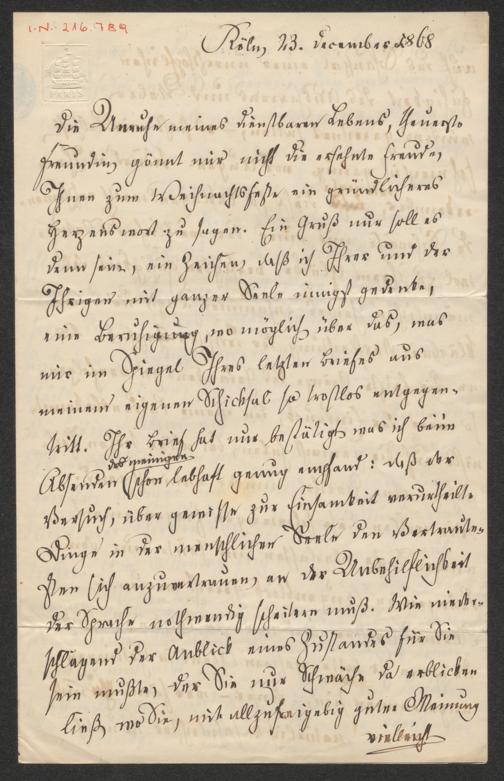 I.N. 216.789
PARIS
Köln, 23. december 1868
Die Unruhe meines dienstbaren Lebens, theuerste
Freundin, gönnt mir nicht die ersehnte Freude,
Ihnen zum Weihnachtsfeste ein gründlicheres
Herzenswort zu sagen. Ein Gruß nur soll es
denn sein, ein Zeichen, daß ich Ihrer und der
Ihrigen mit ganzer Seele innigst gedenke,
eine Beruhigung, wo möglich über das, was
mir im Spiegel Ihres letzten Briefes aus
meinem eigenen Schicksal so trostlos entgegen-
tritt. Ihr Brief hat nur bestätigt was ich beim
des meinigen
Absenden schon lebhaft genug empfand: daß der
Versuch, über gewisse zur Einsamkeit verurtheilte
Dinge in der menschlichen Seele den Vertraute-
sten sich anzuvertrauen, an der Unbehilflichkeit
der Sprache nothwendig scheitern muß. Wie nieder-
schlagend der Anblick eines Zustandes für Sie
sein mußte, der Sie nur Schwäche da erblicken
ließ wo Sie, mit allzufreigebig guter Meinung
vielleicht